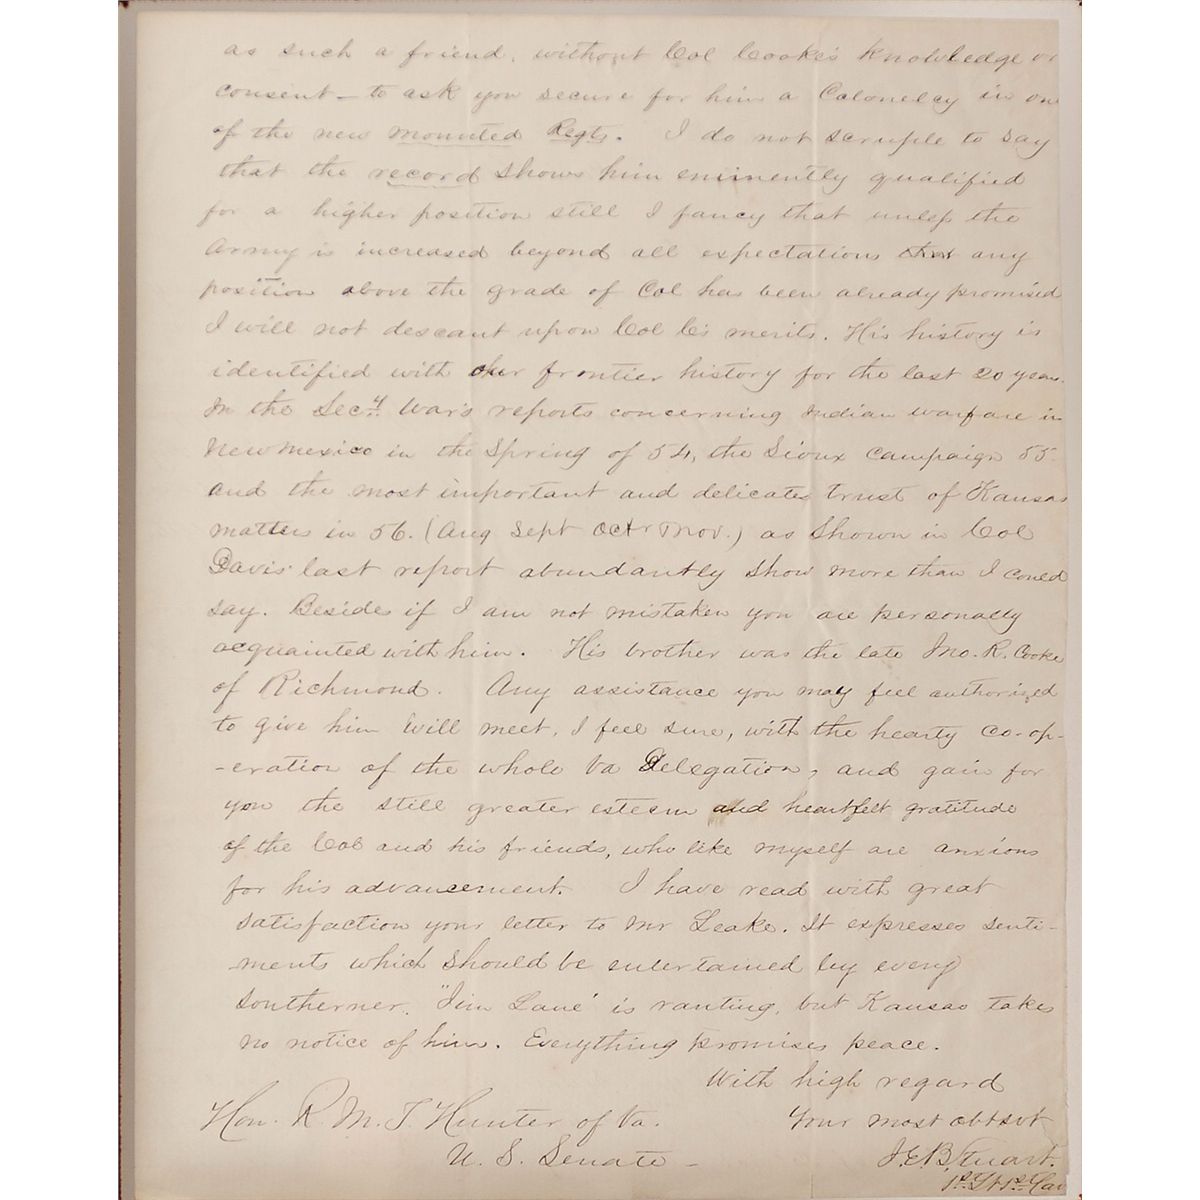 as such a friend, without Col Cooke's knowledge or
consent – to ask you secure for him a Colonelcy in on
of the new mounted Regts. I do not scruple to say
that the record shows him eminently qualified
for a higher position still I fancy that unless the
Army is increased beyond all expectations that any
position above the grade of Col has been already promised
I will not descant upon Col C's merits. His history is
identified with our frontier history for the last 20 years.
In the Secy. War's reports concerning Indian warfare in
New Mexico in the Spring of 54, the Sioux campaign 55
and the most important and delicate trust of Kansas
matters in 56. (Aug Sept Oct & Nov.) as shown in Col
Davis' last report abundantly show more than I could
say. Beside if I am not mistaken you are personally
acquainted with him. His brother was the late Jno. R. Cooke
of Richmond. Any assistance you may feel authorized
to give him will meet, I feel sure, with the hearty co-op-
-eration of the whole Va Delegation, and gain for
you the still greater esteem and heartfelt gratitude
of the Col and his friends, who like myself are anxious
for his advancement. I have read with great
satisfaction your letter to Mr Leake. It expresses senti-
-ments which should be entertained by every
southerner. "Jim Lane' is ranting, but Kansas takes
no notice of him. Everything promises peace.
With high regard
Your most obt svt
J.E.B. Stuart.
1st Lt 1st Cav
Hon. R. M. T. Hunter of Va.
U. S. Senate –